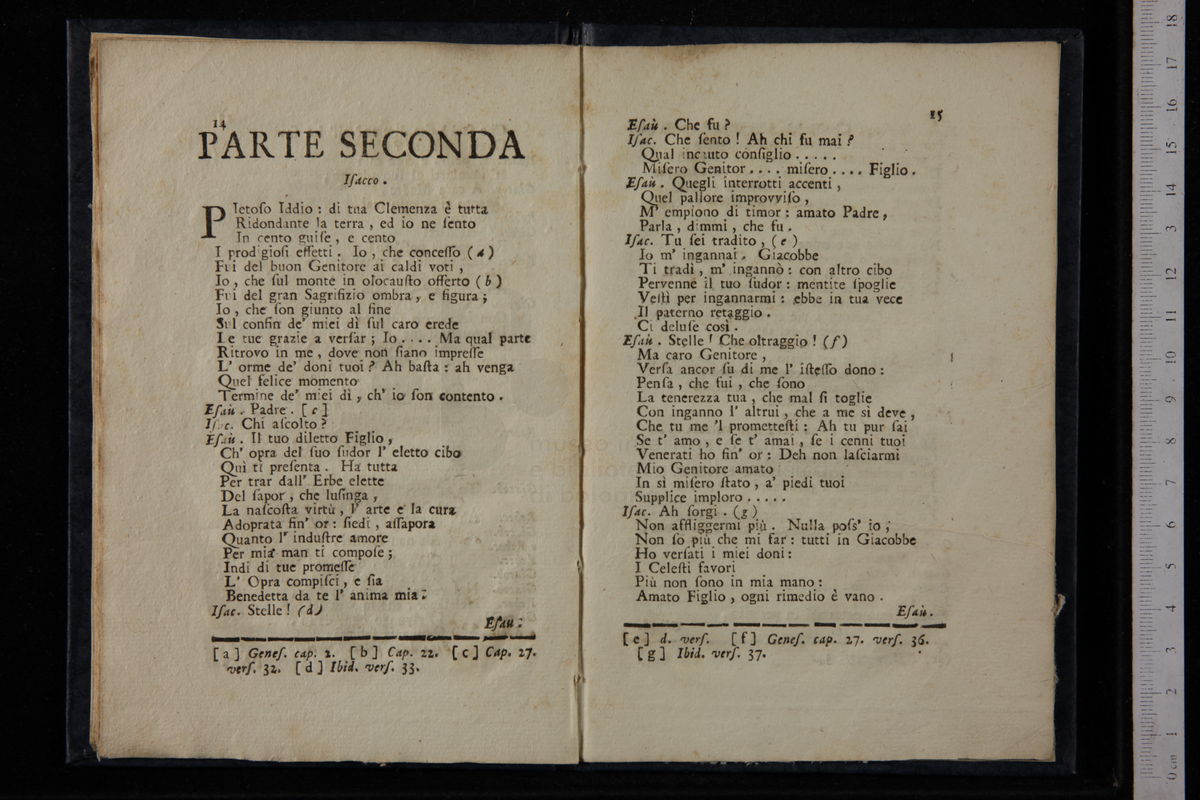 14
PARTE SECONDA
Iſacco.
PIetoſo Iddio: di tua Clemenza è tutta
Ridondante la terra, ed io ne ſento
In cento guiſe, e cento
I prodigioſi effetti. Io, che conceſſo (a)
Fui del buon Genitore ai caldi voti,
Io, che ſul monte in olocauſto offerto (b)
Fui del gran Sagrifizio ombra, e figura;
Io, che ſon giunto al fine
Sul confin de' miei dì ſul caro erede
Le tue grazie a verſar; Io.... Ma qual parte
Ritrovo in me, dove non ſiano impreſſe
L' orme de' doni tuoi? Ah baſta: ah venga
Quel felice momento
Termine de' miei dì, ch' io ſon contento.
Eſaù. Padre. [c]
Iſac. Chi aſcolto?
Eſaù. Il tuo diletto Figlio,
Ch' opra del ſuo ſudor l' eletto cibo
Quì ti preſenta. Ha tutta
Per trar dall' Erbe elette
Del ſapor, che luſinga,
La naſcoſta virtù, l' arte e la cura
Adoprata fin' or: ſiedi, aſſapora
Quanto l' induſtre amore
Per mia man ti compoſe;
Indi di tue promeſſe
L' Opra compiſci, e ſia
Benedetta da te l' anima mia.
Iſac. Stelle! (d)
Eſau:
[a] Geneſ. cap. 2. [b] Cap. 22. [c] Cap. 27.
verſ. 32. [d] Ibid. verſ. 33.
15
Eſaù. Che fu?
Iſac. Che ſento! Ah chi fu mai?
Qual incauto conſiglio.....
Miſero Genitor.... miſero.... Figlio.
Eſaù. Quegli interrotti accenti,
Quel pallore improvviſo,
M' empiono di timor: amato Padre,
Parla, dimmi, che fu.
Iſac. Tu ſei tradito, (e)
Io m' ingannai. Giacobbe
Ti tradì, m' ingannò: con altro cibo
Pervenne il tuo ſudor: mentite ſpoglie
Veſtì per ingannarmi: ebbe in tua vece
Il paterno retaggio.
Ci deluſe così.
Eſaù. Stelle! Che oltraggio! (f)
Ma caro Genitore,
Verſa ancor ſu di me l' iſteſſo dono:
Penſa, che fui, che ſono
La tenerezza tua, che mal ſi toglie
Con inganno l' altrui, che a me sì deve,
Che tu me 'l prometteſti: Ah tu pur ſai
Se t' amo, e ſe t' amai, ſe i cenni tuoi
Venerati ho fin' or: Deh non laſciarmi
Mio Genitore amato
In sì miſero ſtato, a' piedi tuoi
Supplice imploro.....
Iſac. Ah ſorgi. (g)
Non affliggermi più. Nulla poſs' io,
Non ſo più che mi far: tutti in Giacobbe
Ho verſati i miei doni:
I Celeſti favori
Più non ſono in mia mano:
Amato Figlio, ogni rimedio è vano.
Eſaù.
[e] d. verſ. [f] Geneſ. cap. 27. verſ. 36.
[g] Ibid. verſ. 37.